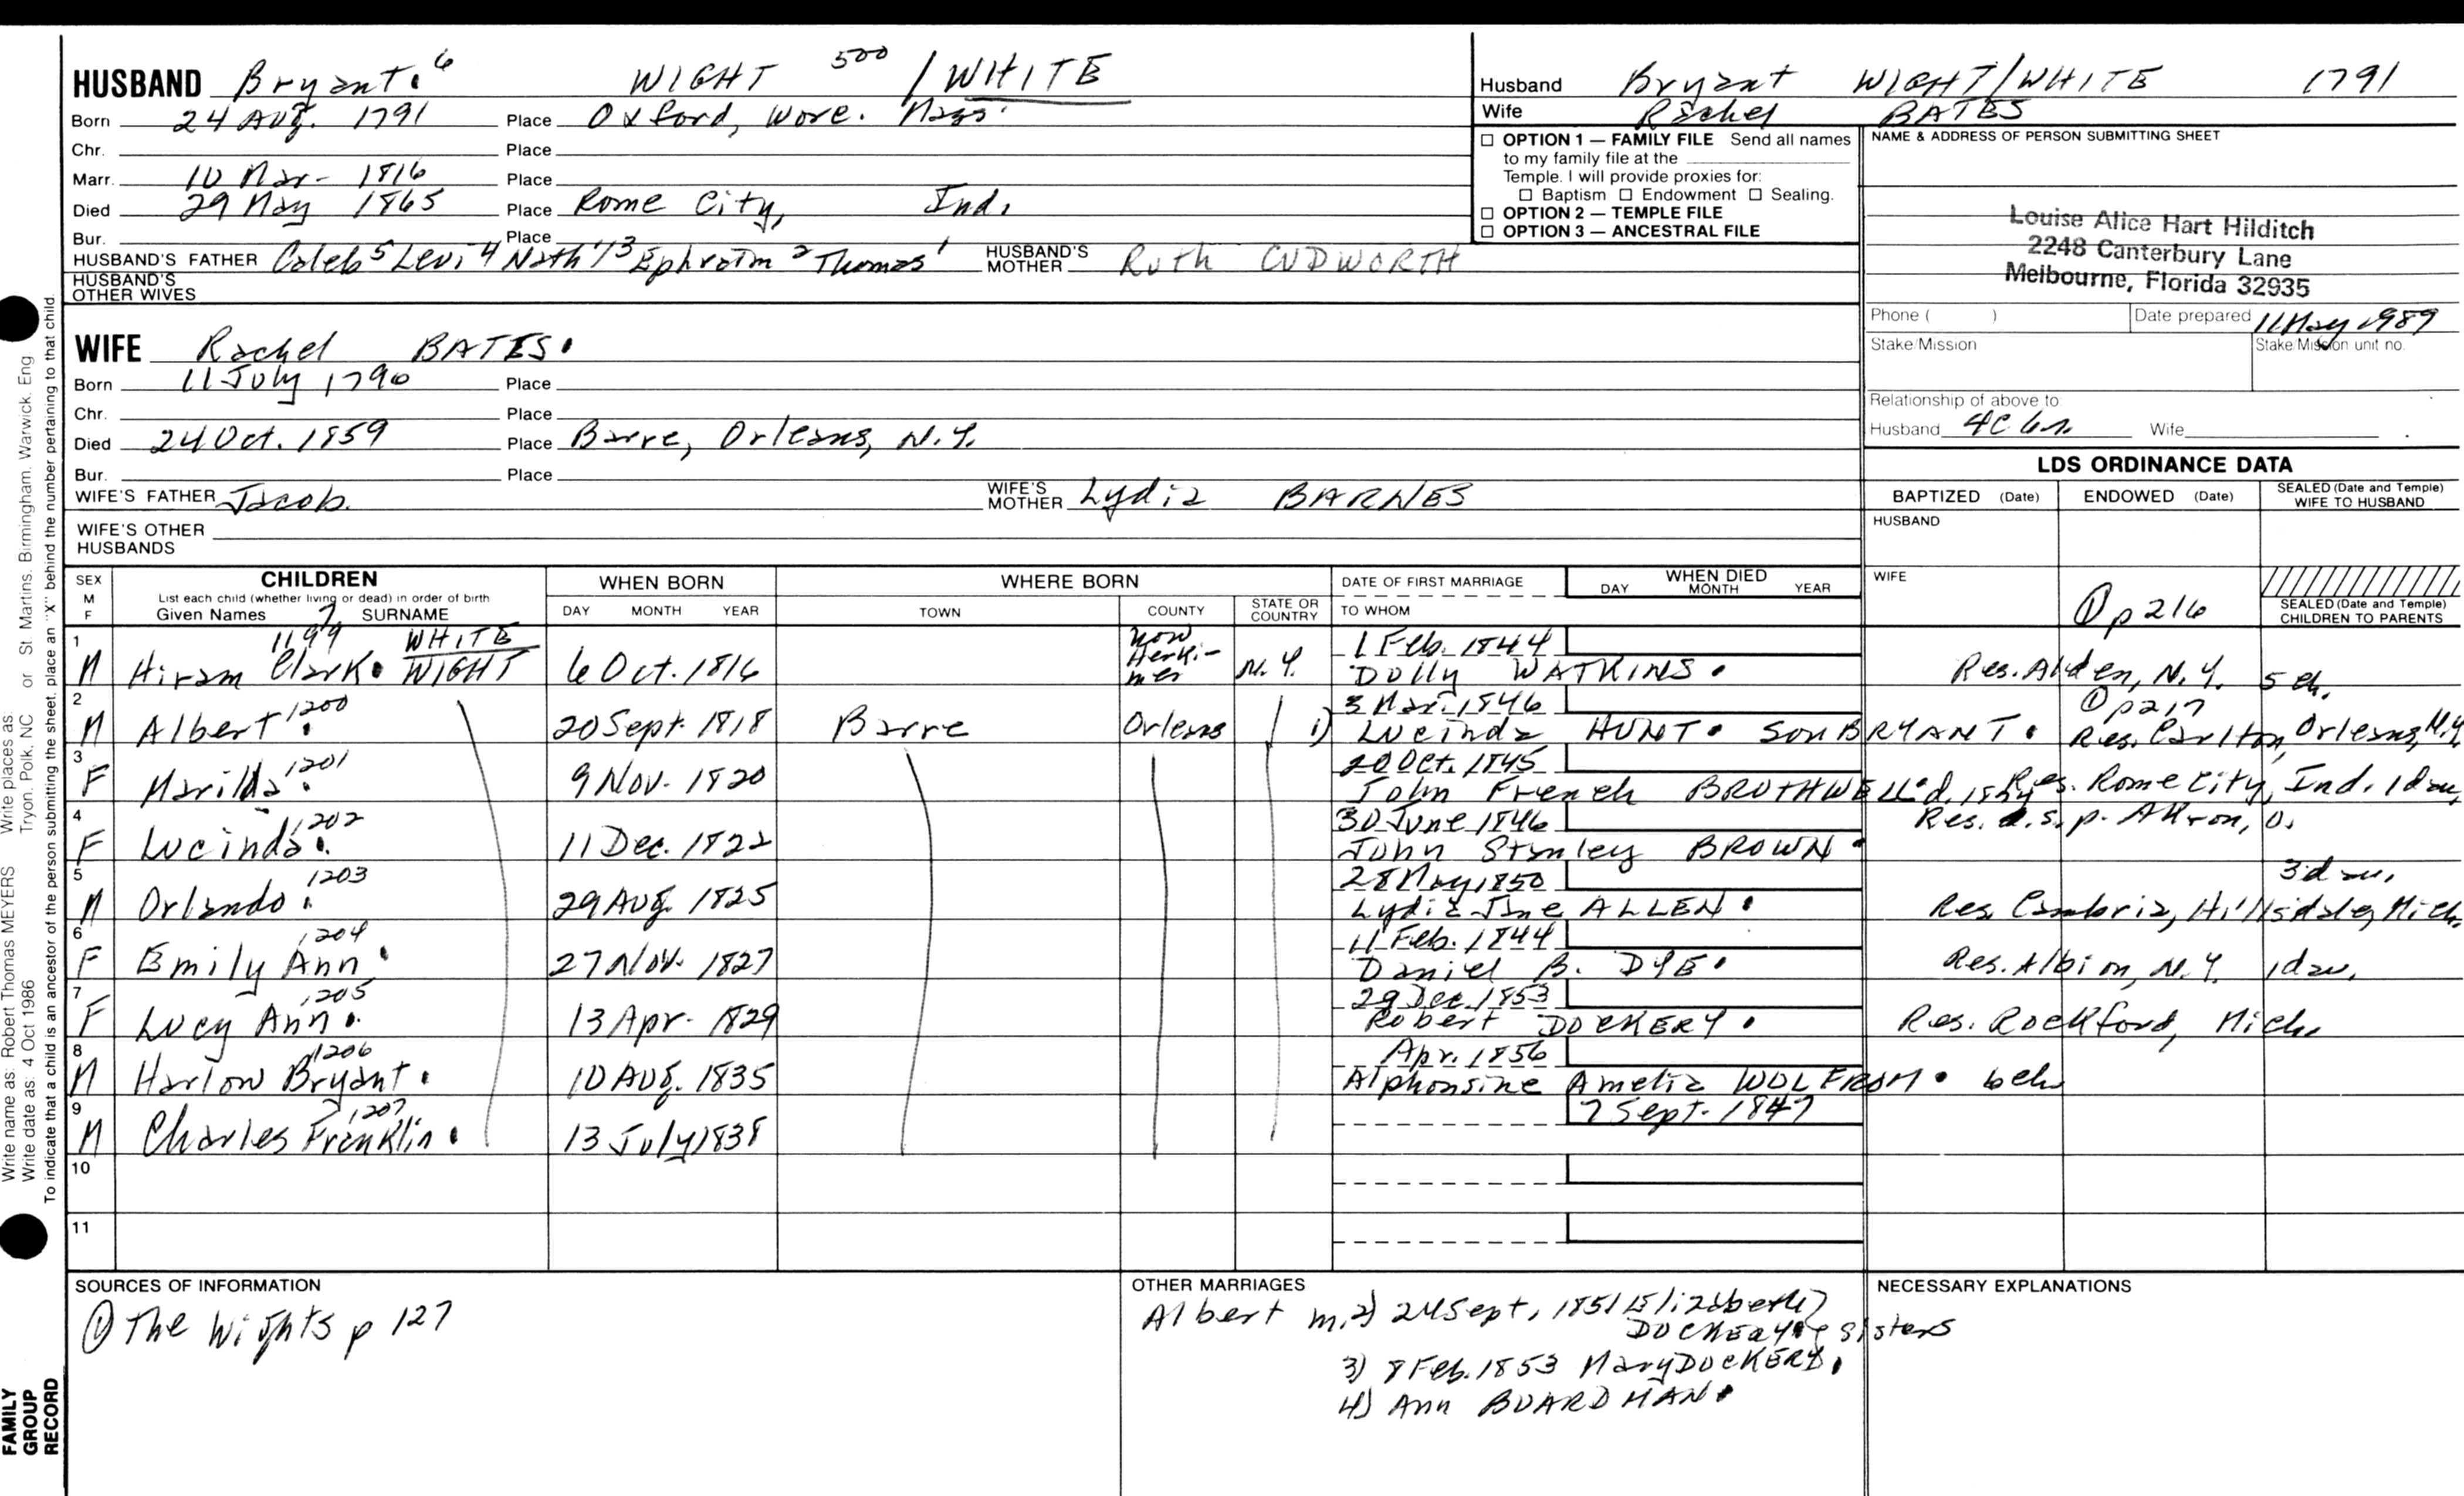 HUSBAND Bryant. 6 WIGHT 500 / WHITE
Born 24 Aug. 1791 Place Oxford, Worc. Mass.
Chr. Place
Marr. 10 Mar- 1816 Place
Died 29 May 1865 Place Rome City, Ind.
Bur. Place
HUSBAND'S FATHER Caleb 5 Levi 4 Nath'l 3 Ephraim 2 Thomas 1 HUSBAND'S MOTHER Ruth CUDWORTH
HUSBAND'S OTHER WIVES
Husband Bryant WIGHT/WHITE 1791
Wife Rachel BATES
☐ OPTION 1 — FAMILY FILE Send all names
to my family file at the
Temple. I will provide proxies for:
☐ Baptism ☐ Endowment ☐ Sealing.
☐ OPTION 2 — TEMPLE FILE
☐ OPTION 3 — ANCESTRAL FILE
NAME & ADDRESS OF PERSON SUBMITTING SHEET
Louise Alice Hart Hilditch
2248 Canterbury Lane
Melbourne, Florida 32935
Phone ( ) Date prepared 11 May 1989
Stake/Mission Stake/Mission unit no.
Relationship of above to
Husband 4C 6r. Wife
WIFE Rachel BATES.
Born 11 July 1790 Place
Chr. Place
Died 24 Oct. 1859 Place Barre, Orleans, N.Y.
Bur. Place
WIFE'S FATHER Jacob. WIFE'S MOTHER Lydia BARNES
WIFE'S OTHER HUSBANDS
LDS ORDINANCE DATA
BAPTIZED (Date) ENDOWED (Date) SEALED (Date and Temple) WIFE TO HUSBAND
HUSBAND
WIFE ① p 216
SEALED (Date and Temple) CHILDREN TO PARENTS
SEX M F CHILDREN WHEN BORN WHERE BORN DATE OF FIRST MARRIAGE WHEN DIED
List each child (whether living or dead) in order of birth
Given Names 7 SURNAME DAY MONTH YEAR TOWN COUNTY STATE OR COUNTRY TO WHOM DAY MONTH YEAR
1 1199 WHITE now Herki-mer 1 Feb. 1844
M Hiram Clark. WIGHT 6 Oct. 1816 N.Y. Dolly WATKINS. Res. Alden, N.Y. 5 ch.
2 1200 3 Mar. 1846 ① p 217
M Albert. 20 Sept. 1818 Barre Orleans 1) Lucinda HUNT. Son BRYANT. Res. Carlton, Orleans, N.Y.
3 1201 20 Oct. 1845
F Marilla. 9 Nov. 1820 John French BROTHWELL. d. Res. Rome City, Ind. 1 dau.
4 1202 30 June 1846 Res. d.s.p. Akron, O.
F Lucinda. 11 Dec. 1822 John Stanley BROWN.
5 1203 28 May 1850 3 dau.
M Orlando. 29 Aug. 1825 Lydia Jane ALLEN. Res. Cambria, Hillsdale, Mich.
6 1204 11 Feb. 1844
F Emily Ann. 27 Nov. 1827 Daniel B. DYE. Res. Albion, N.Y. 1 dau.
7 1205 29 Dec. 1853
F Lucy Ann. 13 Apr. 1829 Robert DOCKERY. Res. Rockford, Mich.
8 1206 Apr. 1856
M Harlow Bryant. 10 Aug. 1835 Alphonsine Amelia WOLFROM. 6 ch
9 1207 7 Sept. 1847
M Charles Franklin. 13 July 1838
10
11
SOURCES OF INFORMATION
① The Wights p 127
OTHER MARRIAGES
Albert m. 2) 24 Sept. 1851 Elizabeth
DOCKERY sisters
3) 8 Feb. 1853 Mary DOCKERY.
4) Ann BOARDMAN.
NECESSARY EXPLANATIONS
Write name as: Robert Thomas MEYERS Write places as: Tryon, Polk, NC or St Martins, Birmingham, Warwick, Eng
Write date as: 4 Oct 1986
To indicate that a child is an ancestor of the person submitting the sheet, place an "X" behind the number pertaining to that child.
FAMILY
GROUP
RECORD